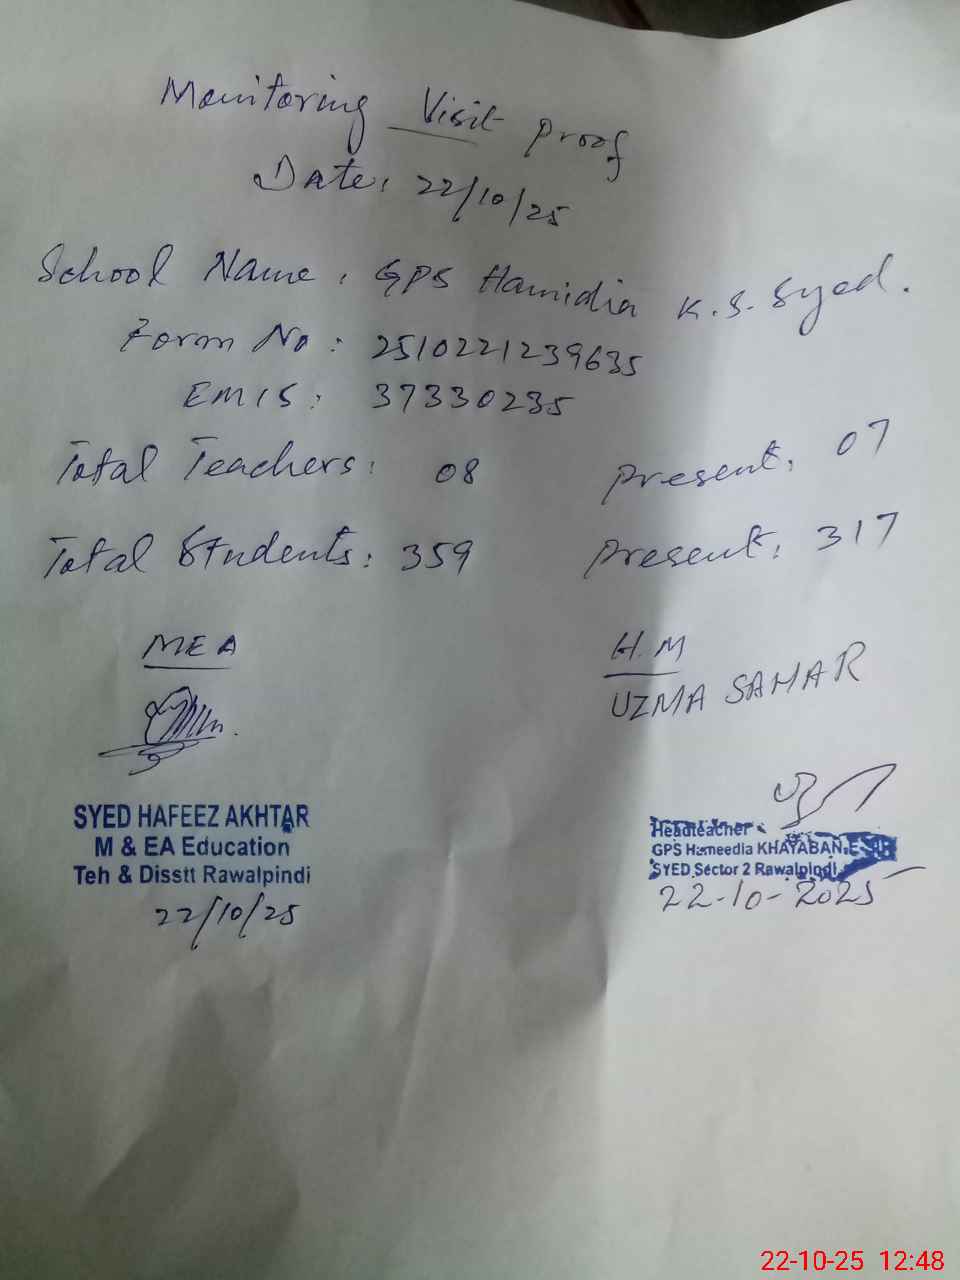 Monitoring Visit proof
Date: 22/10/25
School Name: GPS Hamidia K.S. Syed.
Form No: 2510221239635
EMIS: 37330235
Total Teachers: 08 present: 07
Total Students: 359 present: 317
MEA H.M
UZMA SAHAR
SYED HAFEEZ AKHTAR
M & EA Education
Teh & Disstt Rawalpindi
22/10/25
Headteacher
GPS Hameedia KHAYABAN.E
SYED Sector 2 Rawalpindi
22-10-2025
22-10-25 12:48